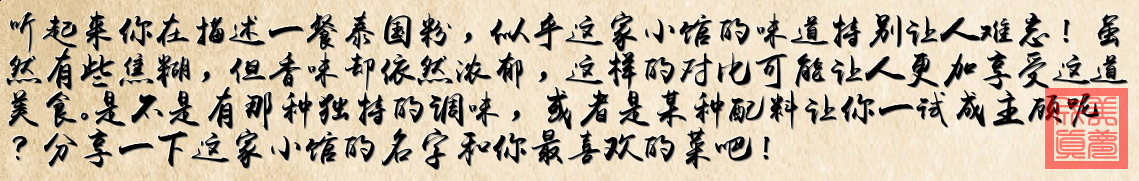 听起来你在描述一餐泰国粉，似乎这家小馆的味道特别让人难忘！虽
然有些焦糊，但香味却依然浓郁，这样的对比可能让人更加享受这道
美食。是不是有那种独特的调味，或者是某种配料让你一试成主顾呢
？分享一下这家小馆的名字和你最喜欢的菜吧！